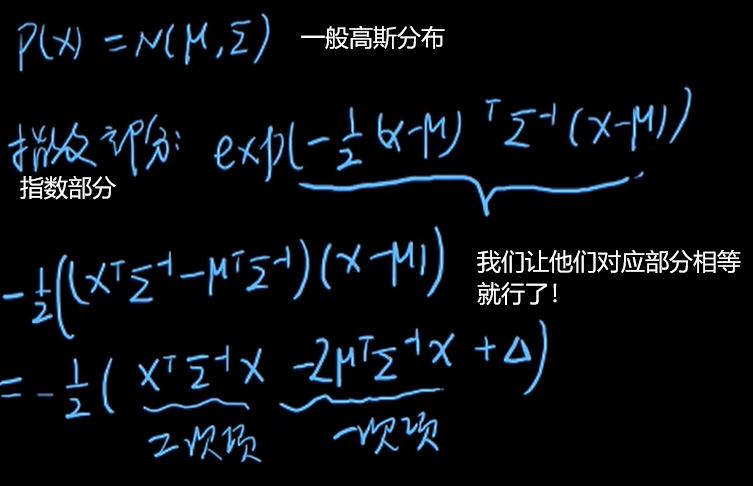 P(x) = N(μ, Σ) 一般高斯分布
指数部分: exp(-1/2 (x-μ)ᵀ Σ⁻¹ (x-μ))
指数部分
-1/2((xᵀΣ⁻¹-μᵀΣ⁻¹)(x-μ)) 我们让他们对应部分相等
就行了!
= -1/2 ( xᵀΣ⁻¹x -2μᵀΣ⁻¹x + Δ)
2次项 一次项